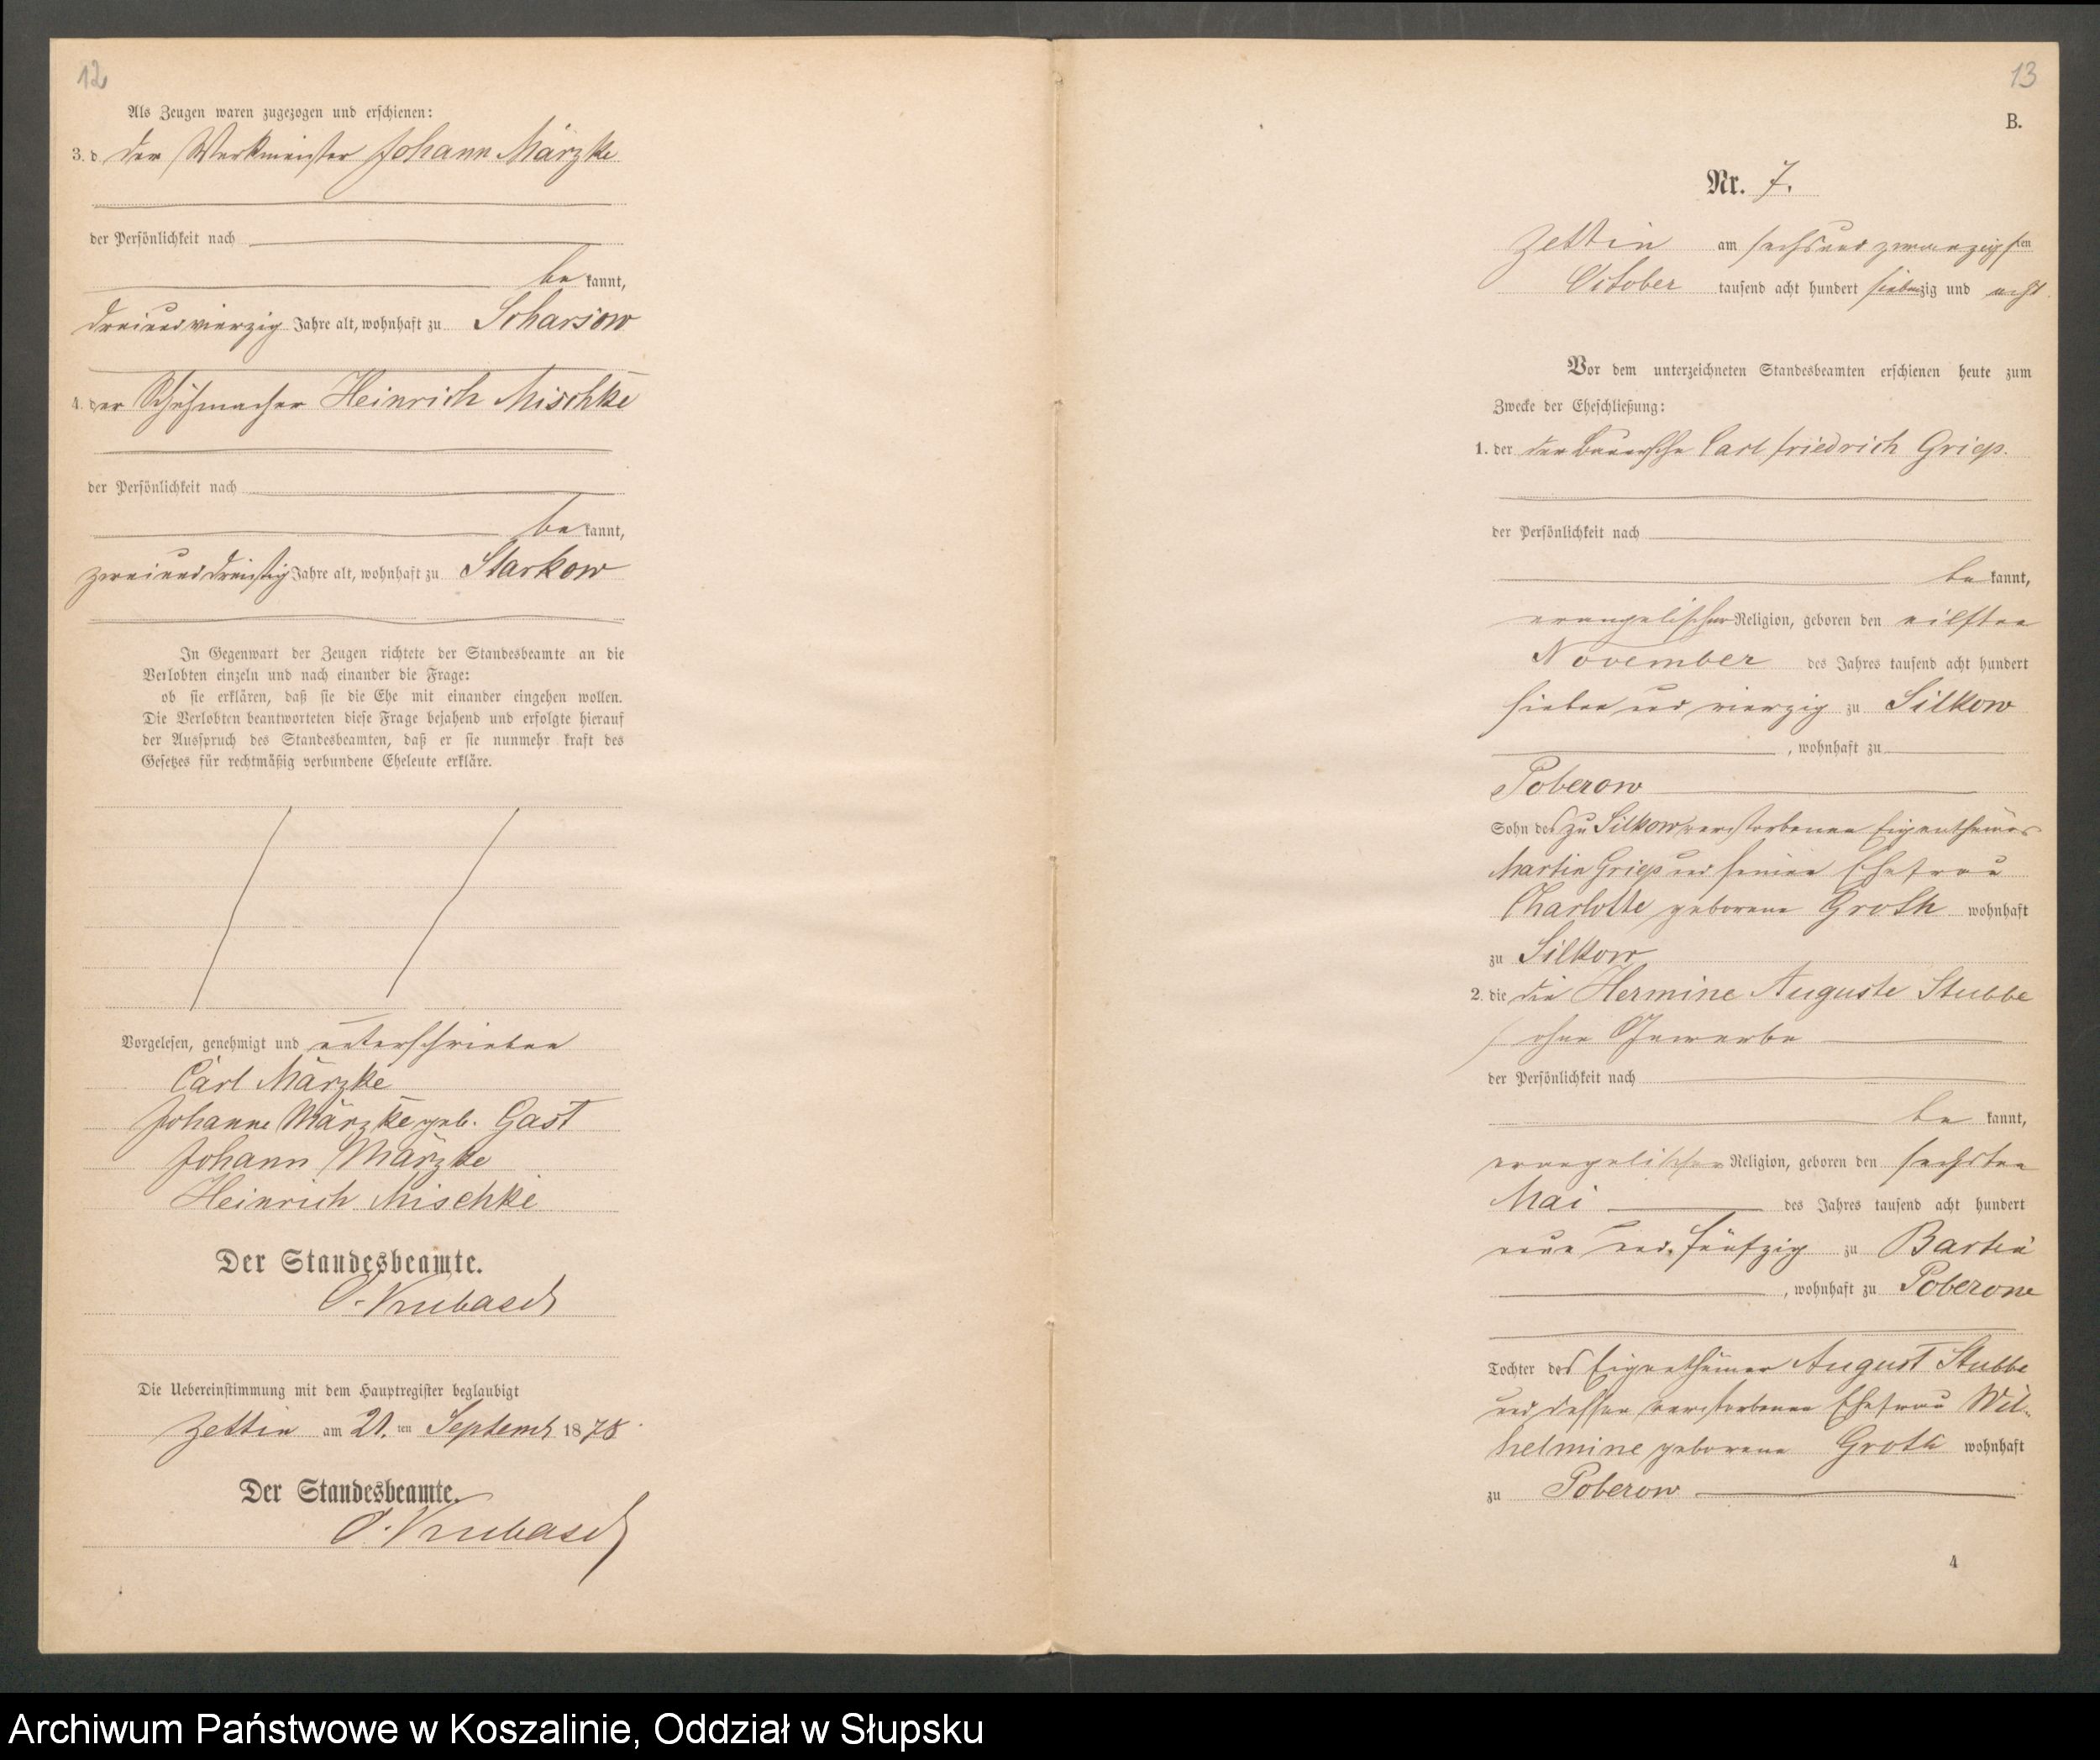 12
Als Zeugen waren zugezogen und erschienen:
3. d der Werkmeister Johann Märzke
der Persönlichkeit nach
be kannt,
dreiundvierzig Jahre alt, wohnhaft zu Scharsow
4. der Schuhmacher Heinrich Mischke
der Persönlichkeit nach
be kannt,
zweiunddreißig Jahre alt, wohnhaft zu Starkow
In Gegenwart der Zeugen richtete der Standesbeamte an die
Verlobten einzeln und nach einander die Frage:
ob sie erklären, daß sie die Ehe mit einander eingehen wollen.
Die Verlobten beantworteten diese Frage bejahend und erfolgte hierauf
der Ausspruch des Standesbeamten, daß er sie nunmehr kraft des
Gesetzes für rechtmäßig verbundene Eheleute erkläre.
Vorgelesen, genehmigt und unterschrieben
Carl Märzke
Johanne Märzke geb. Gast
Johann Märzke
Heinrich Mischke
Der Standesbeamte.
Die Uebereinstimmung mit dem Hauptregister beglaubigt
Zettin am 21. ten Septembr 1878.
Der Standesbeamte.
13
B.
Nr. 7.
Zettin am sechsundzwanzigsten
October tausend acht hundert siebenzig und acht.
Vor dem unterzeichneten Standesbeamten erschienen heute zum
Zwecke der Eheschließung:
1. der der Carl Friedrich Griep.
der Persönlichkeit nach
be kannt,
evangelischer Religion, geboren den eilften
November des Jahres tausend acht hundert
sieben und vierzig zu Silkow
, wohnhaft zu
Poberow
Sohn des zu Silkow verstorbenen Eigenthümers
Martin Griep und seiner Ehefrau
Charlotte geborene Groth wohnhaft
zu Silkow
2. die die Hermine Auguste Stubbe
ohne Gewerbe
der Persönlichkeit nach
be kannt,
evangelischer Religion, geboren den sechsten
Mai des Jahres tausend acht hundert
neun und fünfzig zu Bartin
, wohnhaft zu Poberow
Tochter des Eigenthümer August Stubbe
und dessen verstorbenen Ehefrau Wil-
helmine geborene Groth wohnhaft
zu Poberow
4
Archiwum Państwowe w Koszalinie, Oddział w Słupsku